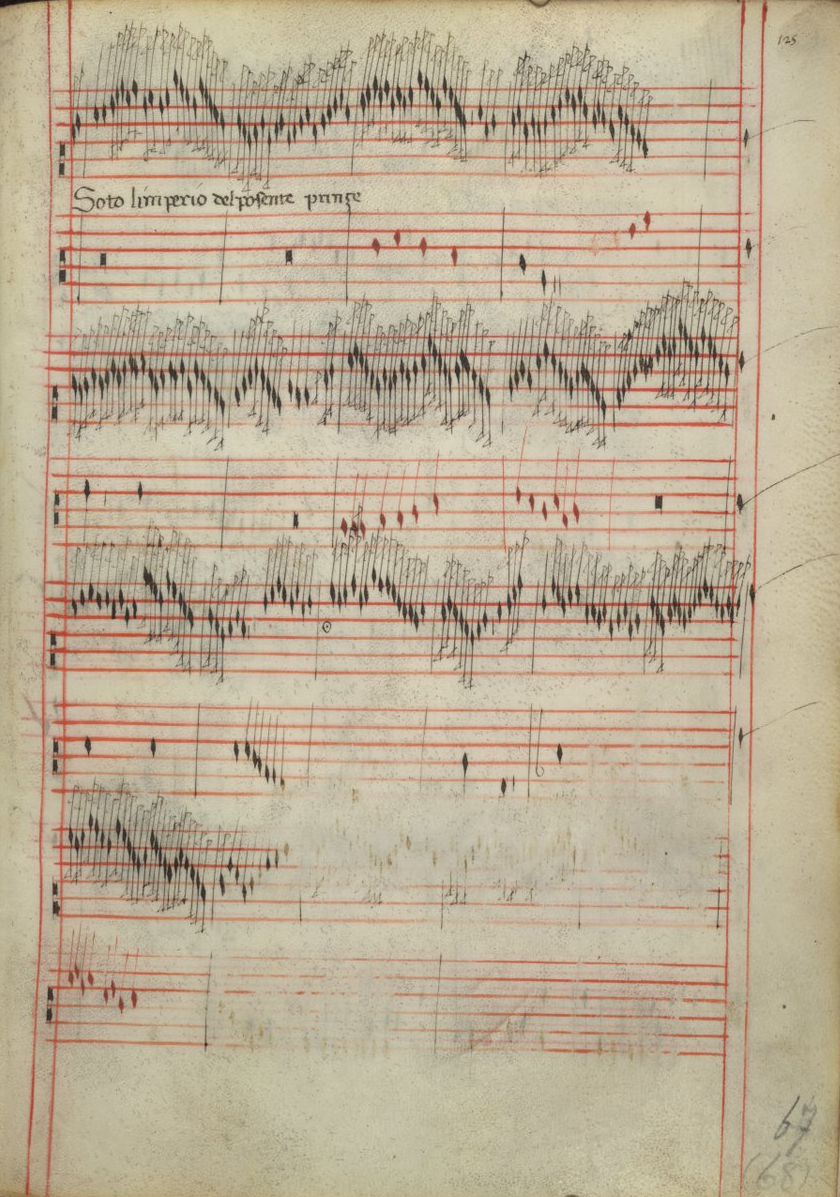 125
Soto limperio del posente prinçe
67
(68)